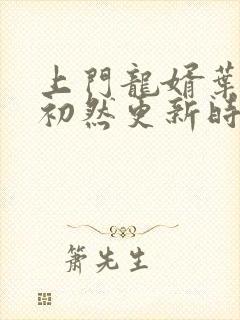 上門龍婿葉
初然更新時
簫先生